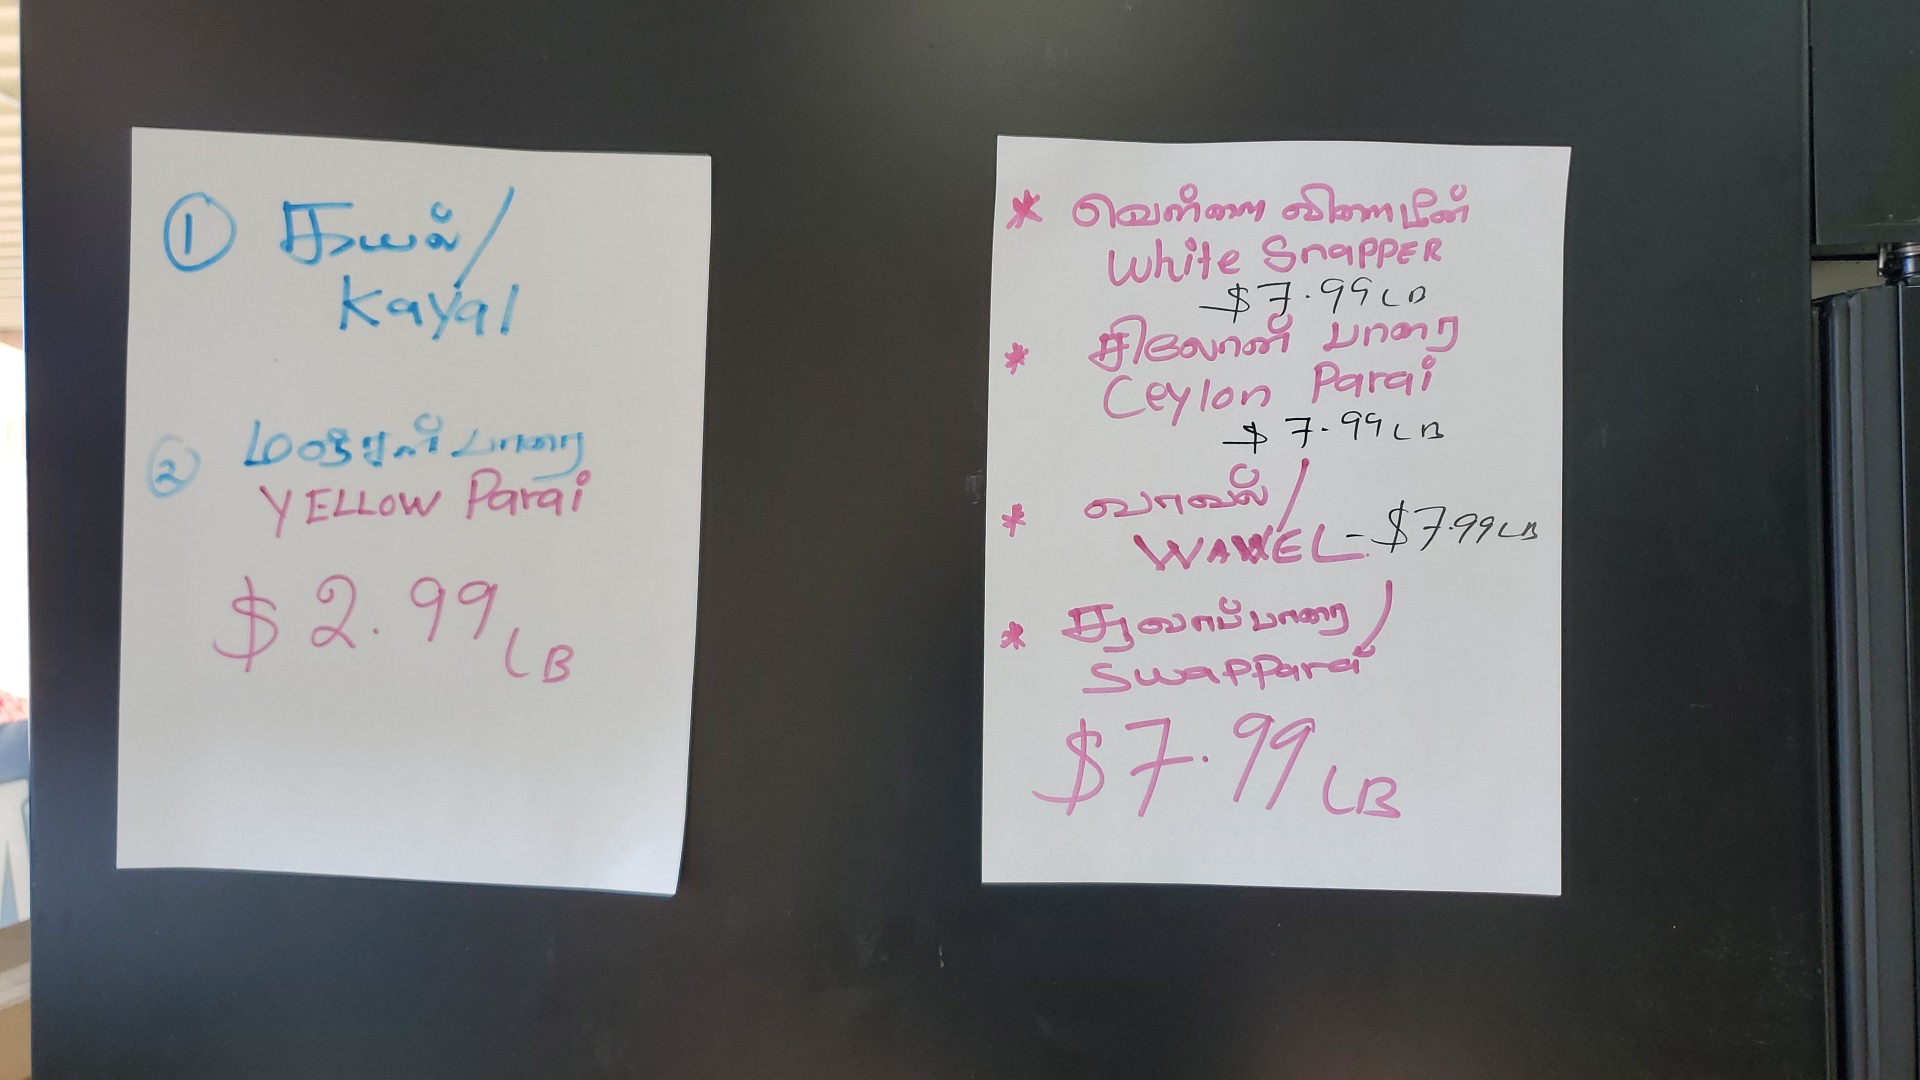 1 கயல்/
Kayal
2 மஞ்சள் பாரை
YELLOW Parai
$2.99 LB
* வெள்ளை விளைமீன்
White SnaPPER
$7.99 LB
* சிலோன் பாரை
Ceylon Parai
$7.99 LB
* வாவல்/
WAVEL - $7.99 LB
* சுவாப்பாரை/
SwaPParai
$7.99 LB